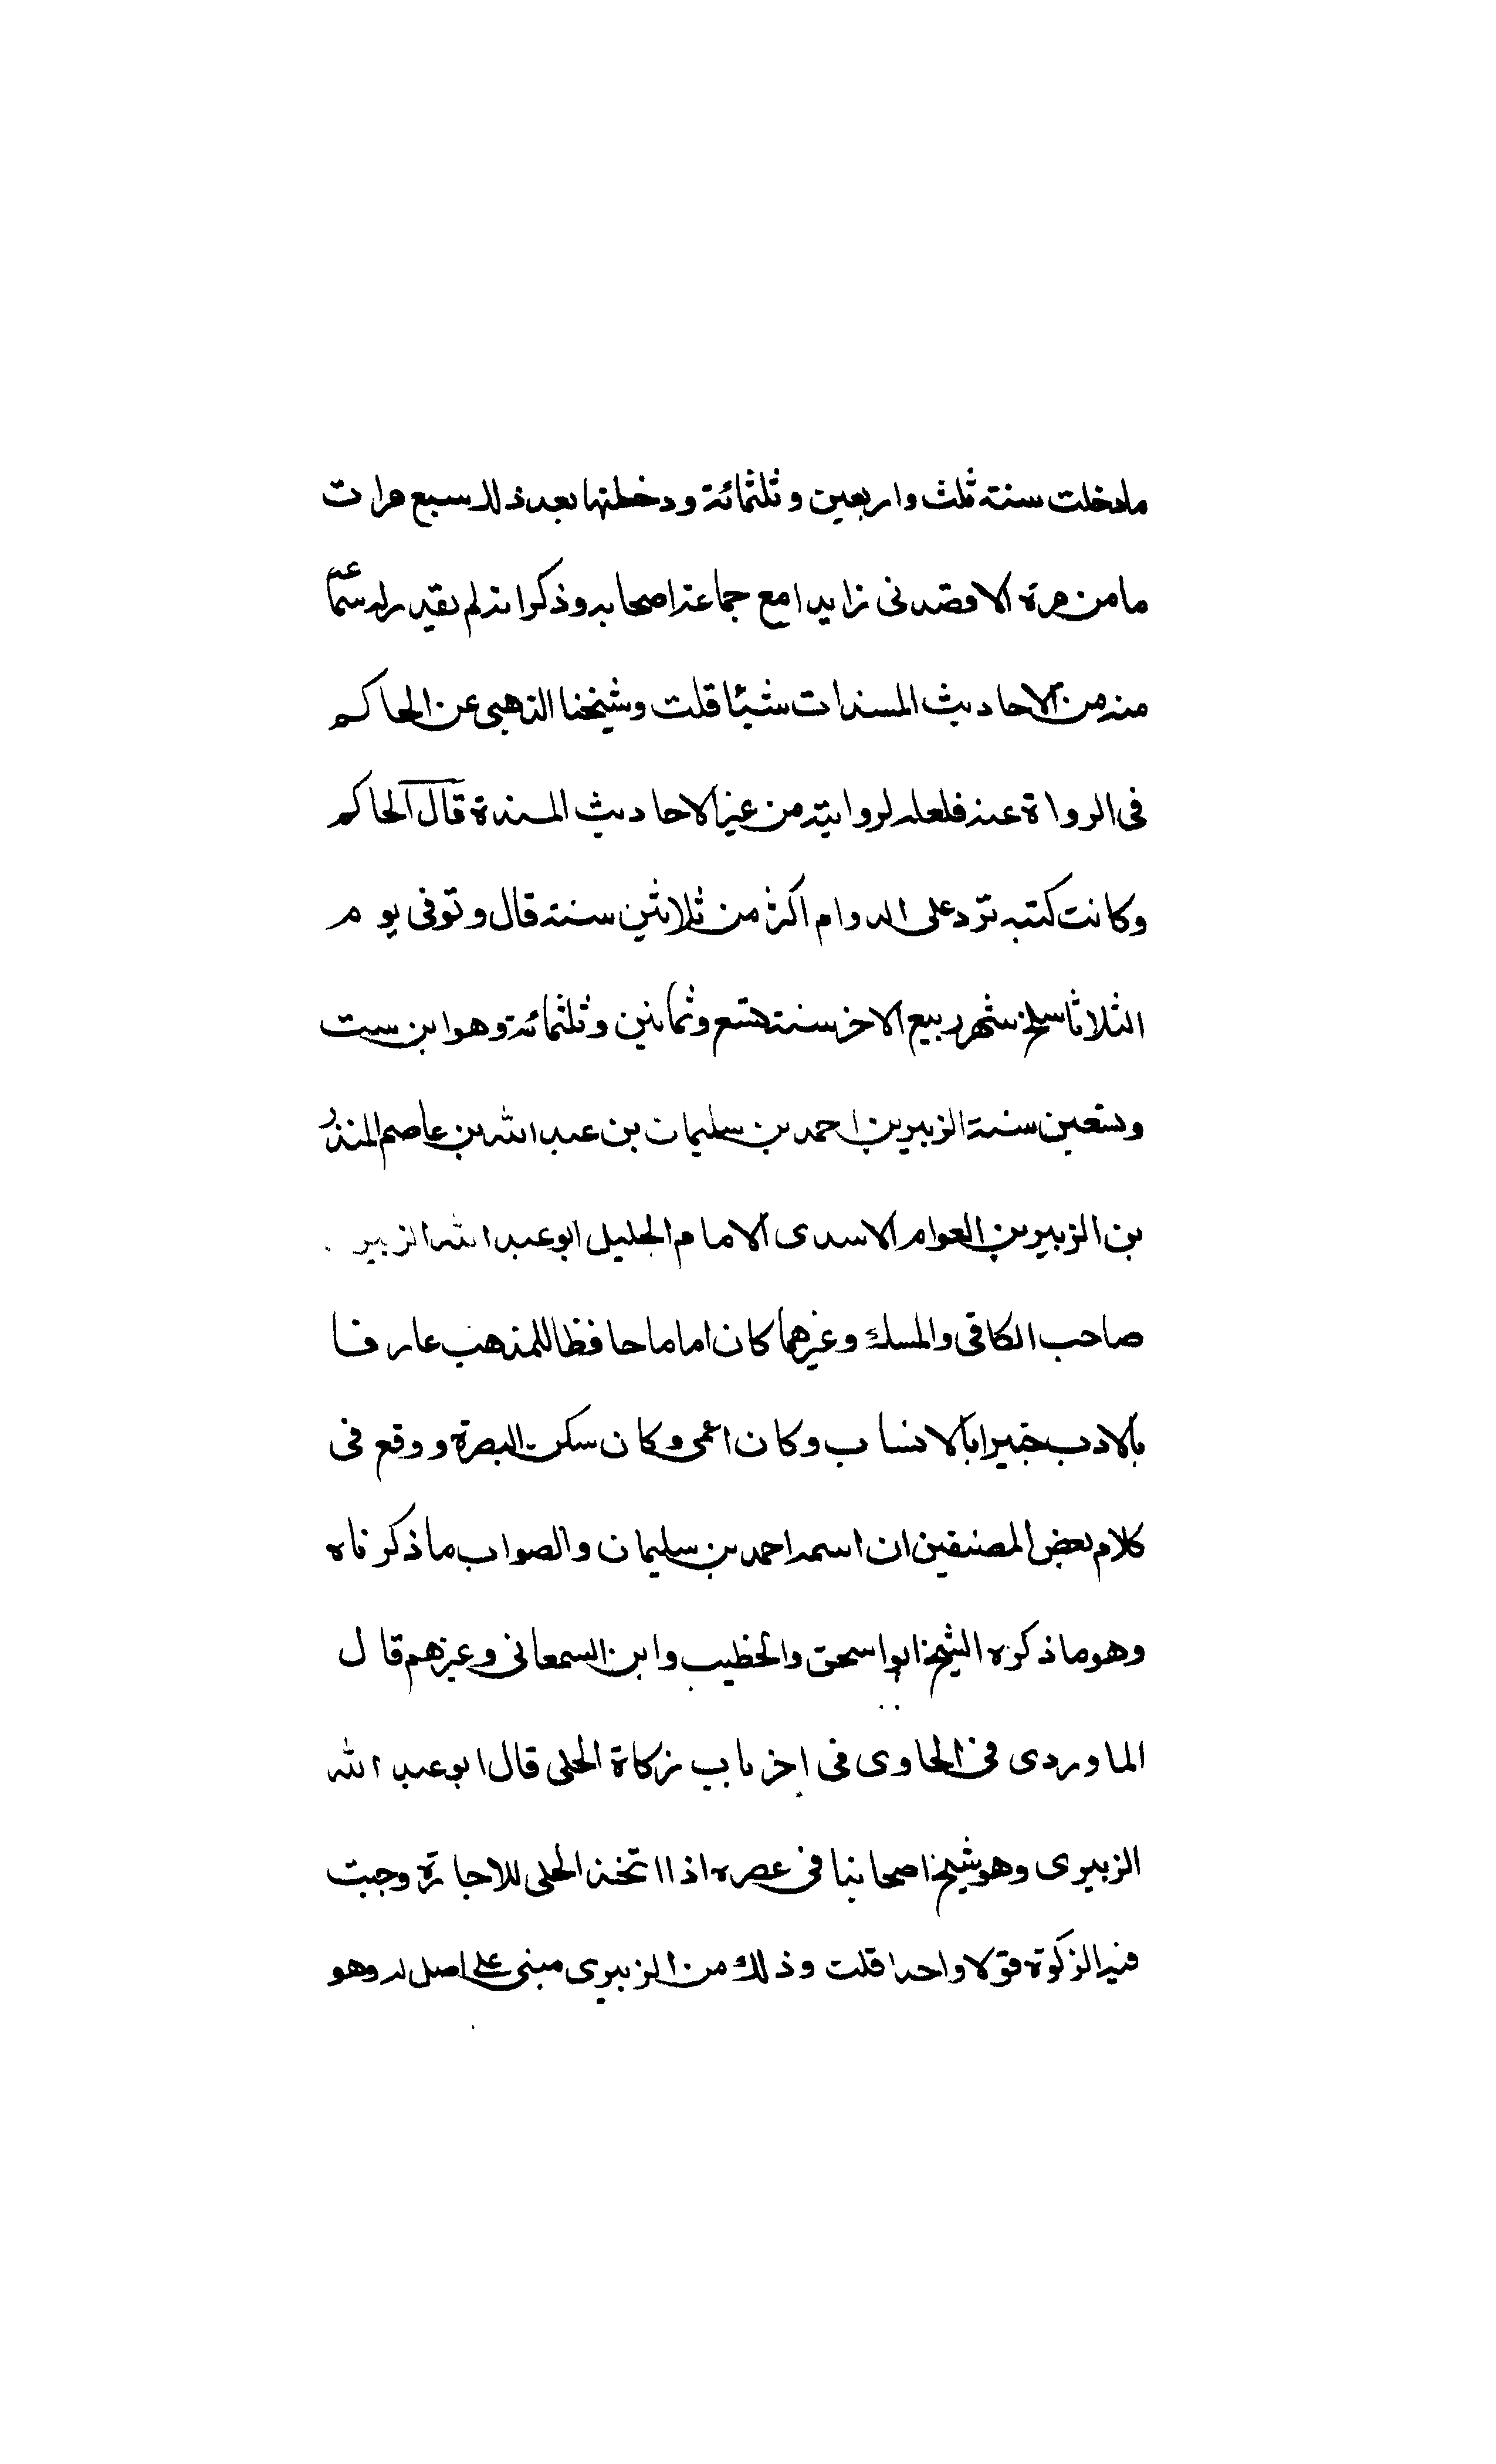 ما دخلت سنة ثلث واربعين وثلثمائة ودخلتها بعد ذلك سبع مرات
ما من مرة الا وقصدنى زايدا مع جماعة اصحابه وذكر انه لم يقيد له سماع
منه من الاحاديث المسندات شيئا قلت وشيخنا الذهبى عن الحاكم
فى الرواة عنه فلعله لروايته من غير الاحاديث المسندة قال الحاكم
وكانت كتبه ترد على الدوام اكثر من ثلاثين سنة قال وتوفى يوم
الثلاثا سلخ شهر ربيع الاخر سنة تسع وثمانين وثلثمائة وهو ابن ست
وتسعين سنة الزبير بن احمد بن سليمان بن عبد الله بن عاصم المنذر
بن الزبير بن العوام الاسدى الامام الجليل ابو عبد الله الزبير
صاحب الكافى والمسك وغيرهما كان اماما حافظا للمذهب عارفا
بالادب خبيرا بالانساب وكان اعمى وكان سكن البصرة ووقع فى
كلام بعض المصنفين ان اسمه احمد بن سليمان والصواب ما ذكرناه
وهو ما ذكره الشيخ ابو اسحق والخطيب وابن السمعانى وغيرهم قال
الماوردى فى الحاوى فى اخر باب زكاة الحلى قال ابو عبد الله
الزبيرى وهو شيخ اصحابنا فى عصره اذا اتخذ الحلى للاجارة وجبت
فيه الزكوة قولا واحدا قلت وذلك من الزبيرى مبنى على اصل له وهو